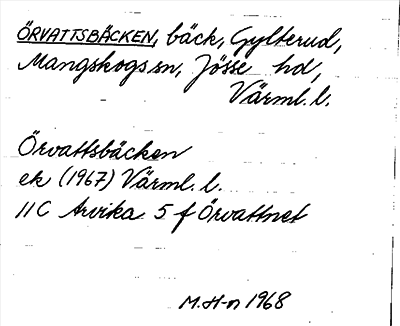 ÖRVATTSBÄCKEN, bäck, Gylterud,
Mangskogs sn, Jösse hd,
Värml. l.
Örvattsbäcken
ek (1967) Värml. l.
11C Arvika 5 f Örvattnet
M.H-n 1968